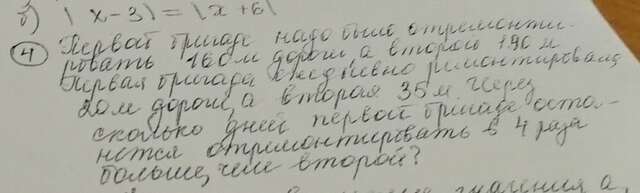 б) |x-3|=|x+6|
④ Первой бригаде надо было отремонти-
ровать 160м дороги, а второй 190 м
Первая бригада ежедневно ремонтировала
20м дороги, а вторая 35м. Через
сколько дней первой бригаде оста-
нется отремонтировать в 4 раза
больше, чем второй?
значения а,